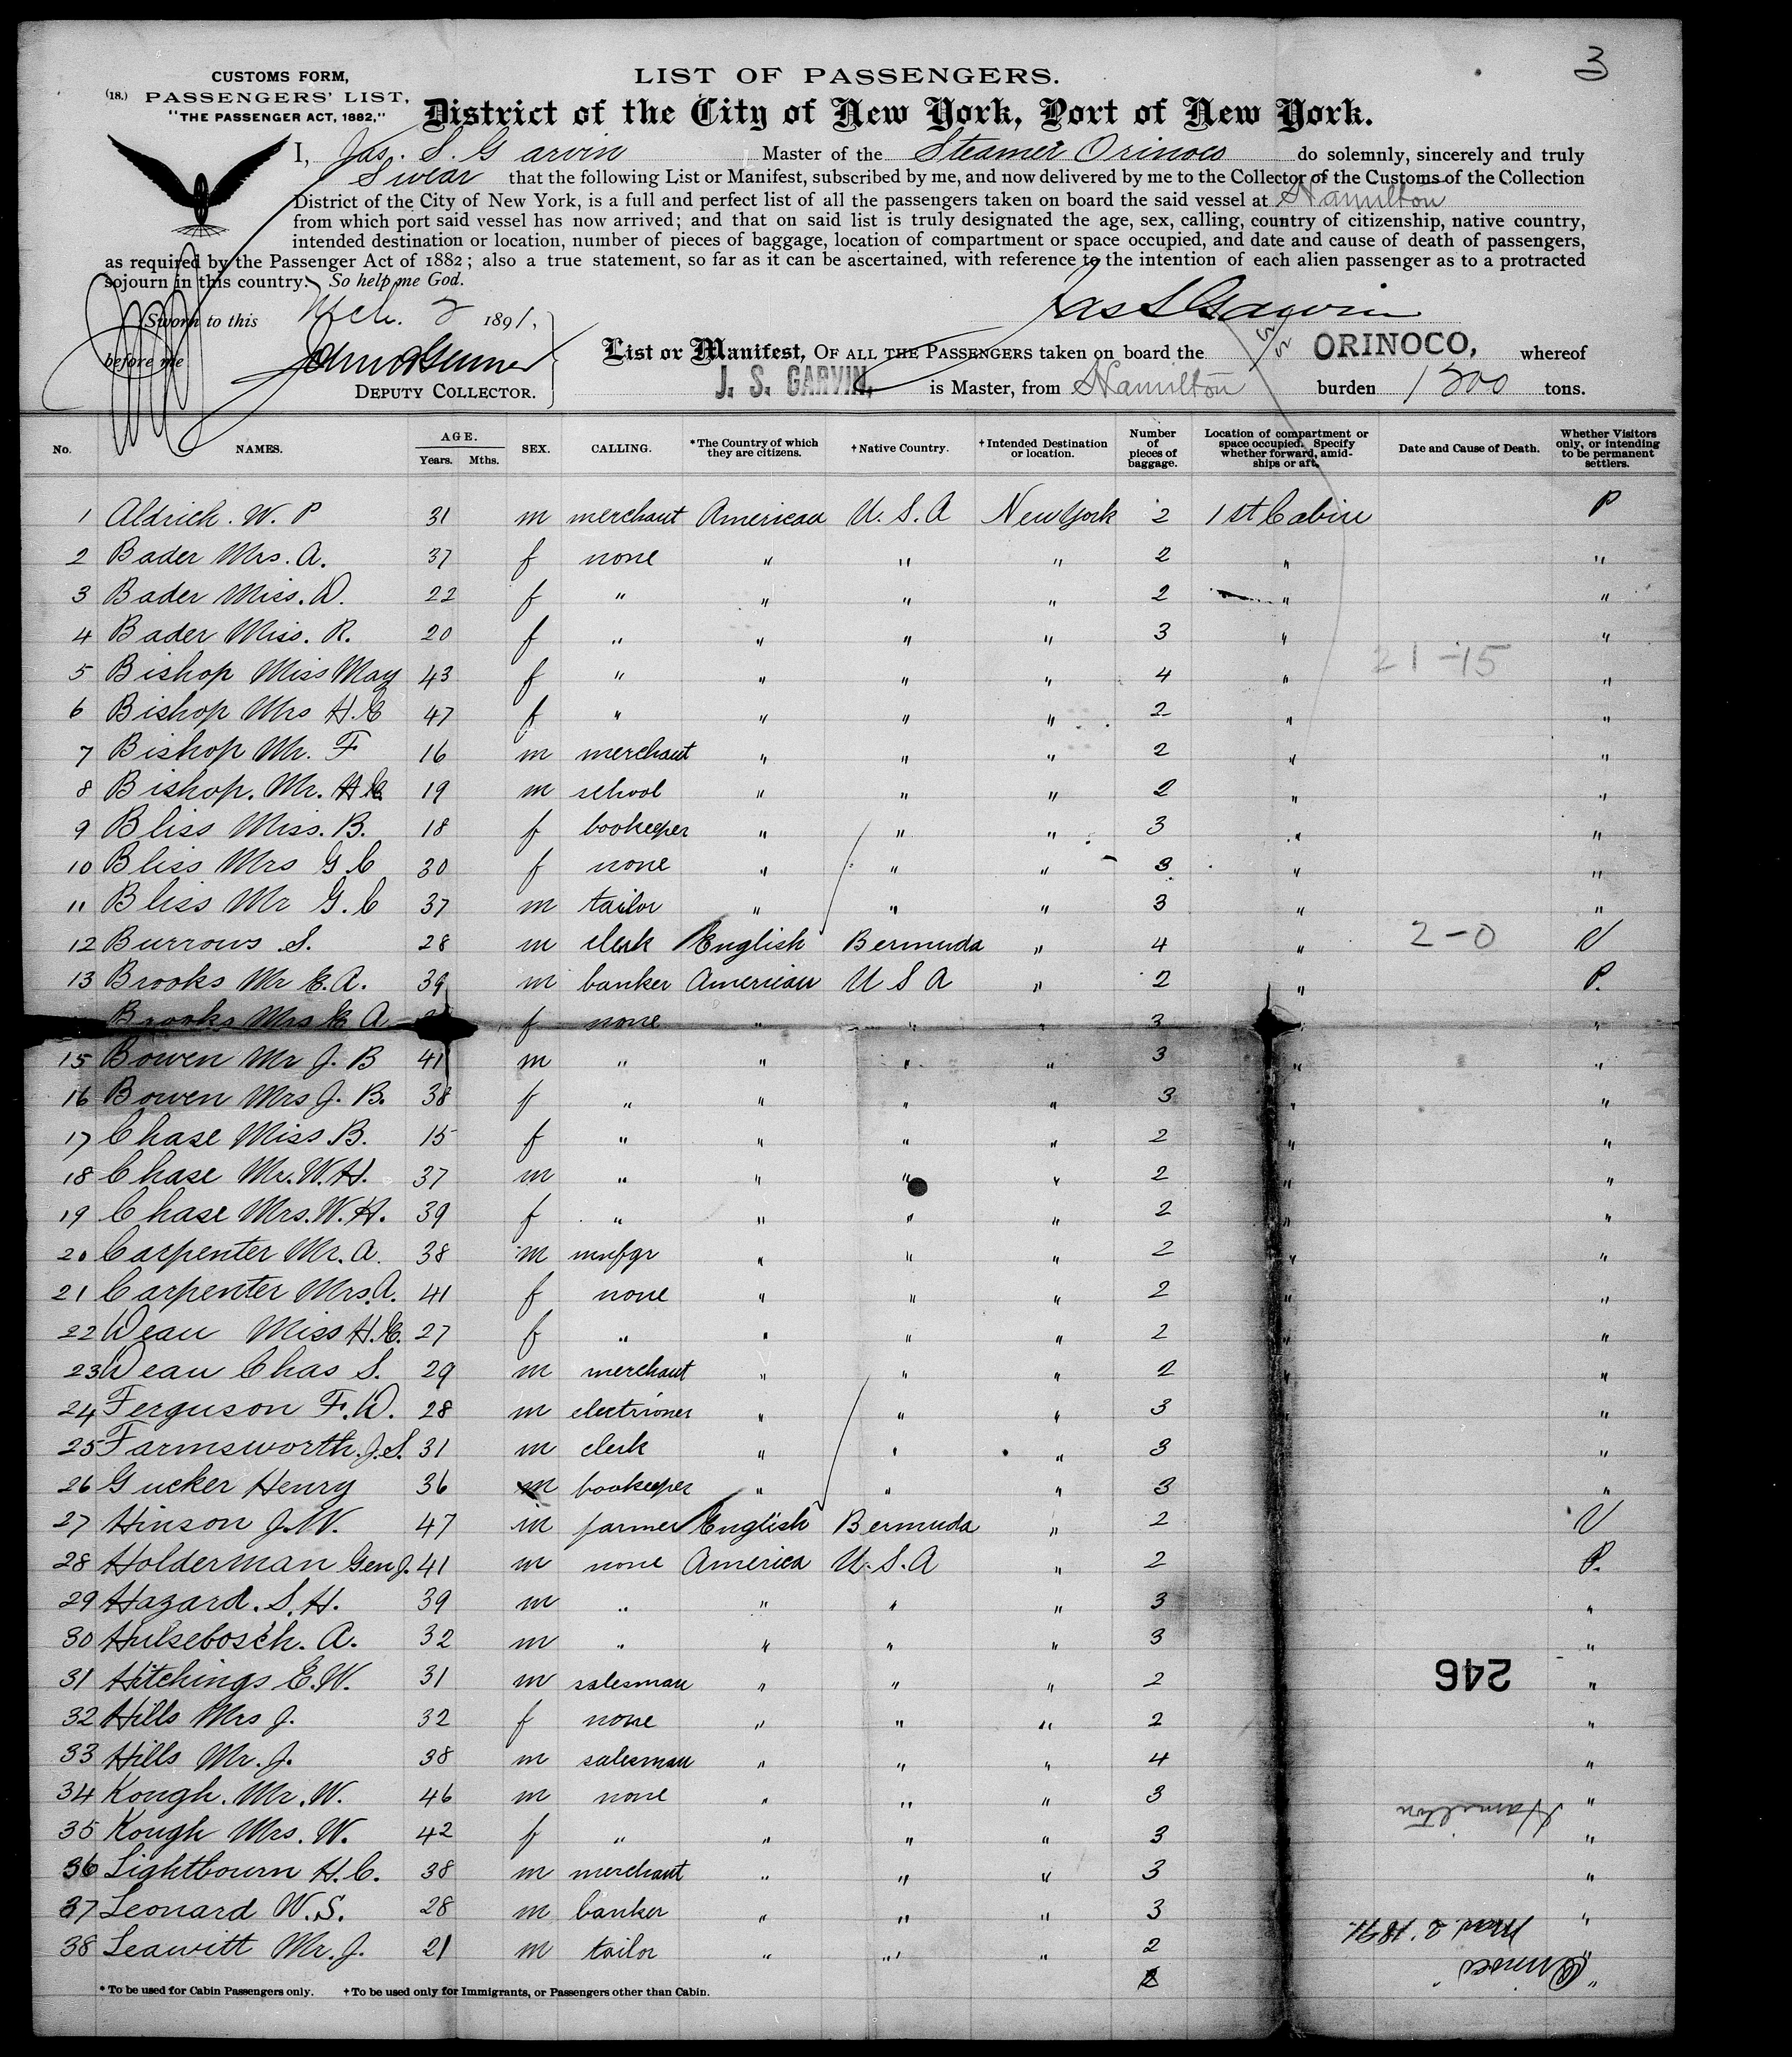 3
CUSTOMS FORM,
(18.) PASSENGERS' LIST,
"THE PASSENGER ACT, 1882,"
LIST OF PASSENGERS.
District of the City of New York, Port of New York.
I, Jas. S. Garvin Master of the Steamer Orinoco do solemnly, sincerely and truly
Swear that the following List or Manifest, subscribed by me, and now delivered by me to the Collector of the Customs of the Collection
District of the City of New York, is a full and perfect list of all the passengers taken on board the said vessel at Hamilton
from which port said vessel has now arrived; and that on said list is truly designated the age, sex, calling, country of citizenship, native country,
intended destination or location, number of pieces of baggage, location of compartment or space occupied, and date and cause of death of passengers,
as required by the Passenger Act of 1882; also a true statement, so far as it can be ascertained, with reference to the intention of each alien passenger as to a protracted
sojourn in this country. So help me God.
Jas S Garvin
Sworn to this Mch. 2 1891,
before me
DEPUTY COLLECTOR.
List or Manifest, OF ALL THE PASSENGERS taken on board the S/S ORINOCO, whereof
J. S. GARVIN, is Master, from Hamilton burden 1500 tons.
No. NAMES. AGE. Years. Mths. SEX. CALLING. *The Country of which they are citizens. †Native Country. †Intended Destination or location. Number of pieces of baggage. Location of compartment or space occupied. Specify whether forward, amidships or aft. Date and Cause of Death. Whether Visitors only, or intending to be permanent settlers.
1 Aldrich. W. P 31 m merchant American U. S. A New York 2 1st Cabin P
2 Bader Mrs. A. 37 f none " " " 2 " "
3 Bader Miss. D. 22 f " " " " 2 " "
4 Bader Miss. R. 20 f " " " " 3 " "
21-15
5 Bishop Miss May 43 f " " " " 4 " "
6 Bishop Mrs H. C 47 f " " " " 2 " "
7 Bishop Mr. F 16 m merchant " " " 2 " "
8 Bishop. Mr. H C 19 m school " " " 2 " "
9 Bliss Miss. B. 18 f bookeeper " " " 3 " "
10 Bliss Mrs G C 30 f none " " " 3 " "
11 Bliss Mr G. C 37 m tailor " " " 3 " "
12 Burrows S. 28 m clerk English Bermuda " 4 " 2-0 V
13 Brooks Mr E. A. 39 m banker American U S A " 2 " P.
Brooks Mrs E A f none " " " 3 "
15 Bowen Mr J. B 41 m " " " " 3 " "
16 Bowen Mrs J. B. 38 f " " " " 3 " "
17 Chase Miss B. 15 f " " " " 2 " "
18 Chase Mr. W. H. 37 m " " " " 2 " "
19 Chase Mrs. W. H. 39 f " " " " 2 " "
20 Carpenter Mr. A. 38 m mnfgr " " " 2 " "
21 Carpenter Mrs. A. 41 f none " " " 2 " "
22 Dean Miss H. C. 27 f " " " " 2 " "
23 Dean Chas S. 29 m merchant " " " 2 " "
24 Ferguson F. D. 28 m electrioner " " " 3 " "
25 Farmsworth. J. S. 31 m clerk " " " 3 "
26 Gucker Henry 36 m bookeeper " " " 3 "
27 Hinson J. W. 47 m farmer English Bermuda " 2 V
28 Holderman Gen J. 41 m none America U. S. A " 2 P.
29 Hazard. S. H. 39 m " " " " 3 "
30 Hulsebosch. A. 32 m " " " " 3 "
31 Hitchings E. W. 31 m salesman " " " 2 "
246
32 Hills Mrs J. 32 f none " " " 2 "
33 Hills Mr. J. 38 m salesman " " " 4 "
34 Kough. Mr. W. 46 m none " " " 3 "
Hamilton
35 Kough Mrs. W. 42 f " " " " 3 "
36 Lightbourn H. C. 38 m merchant " " " 3 "
37 Leonard W. S. 28 m banker " " " 3 "
Mar. 2. 1891.
38 Leawitt Mr. J. 21 m tailor " " " 2 "
Orinoco
* To be used for Cabin Passengers only. †To be used only for Immigrants, or Passengers other than Cabin.